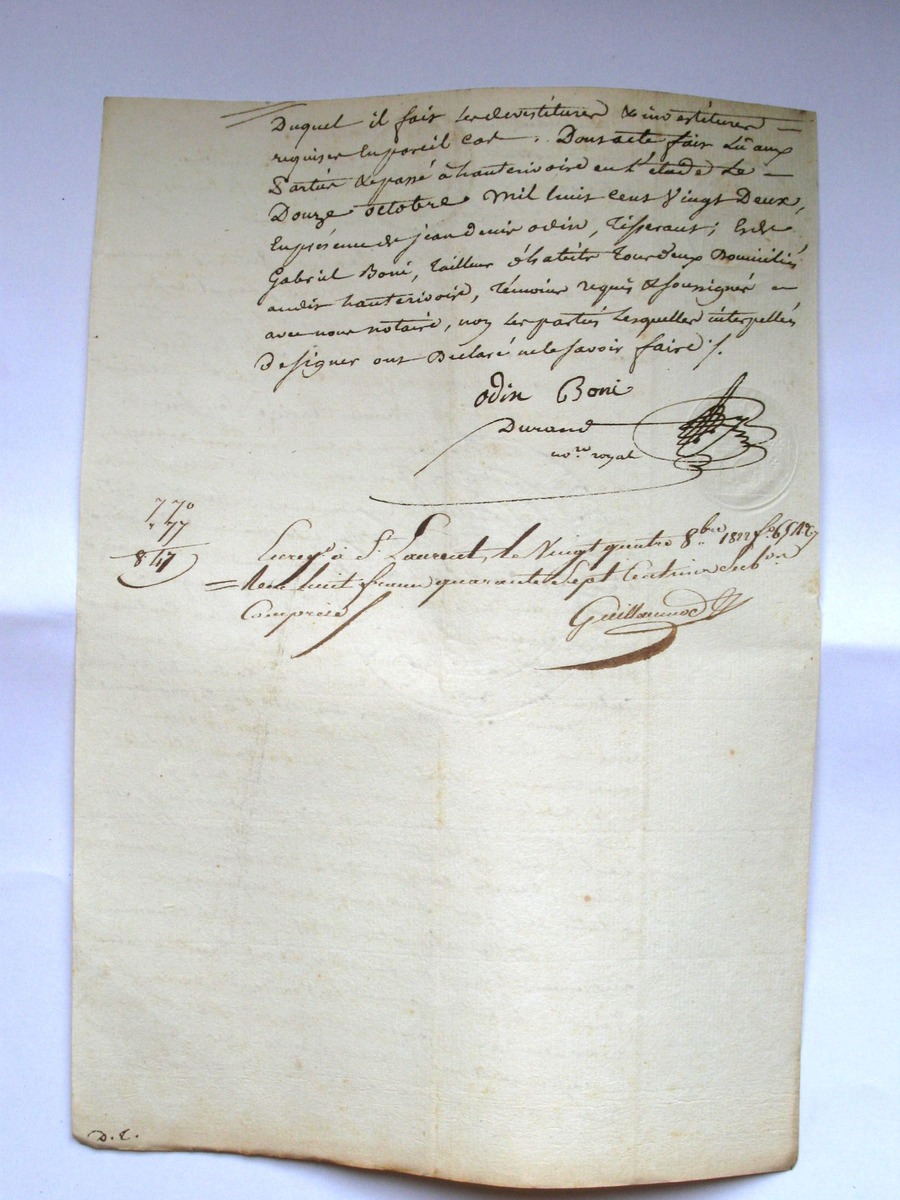 Duquel il fait les devestitures & investitures —
requises en pareil cas . Dont acte fait Lû aux
Parties & passé à hauterivoire en l'étude Le —
Douze octobre mil huit cent Vingt Deux,
En présence de jean denis odin, Tisserant; Et de
Gabriel Boni, tailleur d'habits tous deux Domiciliés
audit hauterivoire, témoins requis & soussignés —
avec nous notaire, non les parties lesquelles interpellés
De signer ont Déclaré ne le savoir faire ./.
odin Boni
Durand
no.re royal
7 70
77
8 47
Enreg.é à S.t Laurent, le Vingt quatre 8.bre 1822 f.o
Reçu huit francs quarante Sept Centimes
Comprise
Guillaumod
D. T.